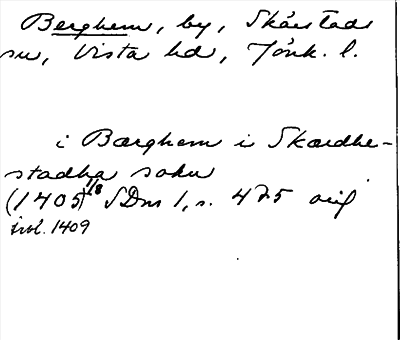 Berghem, by, Skärstads
sn, Vista hd, Jönk. l.
i Bærghem i Skærdhe-
stadha sokn
(1405) 1/8 SDns 1, s. 475 orig
trol. 1409